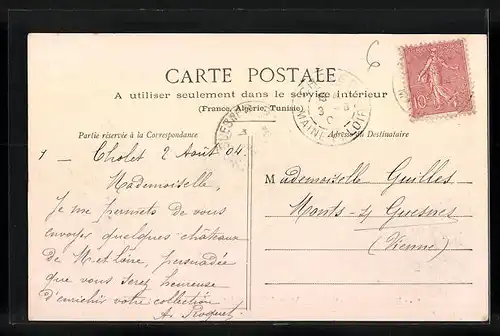 6
CARTE POSTALE
A utiliser seulement dans le service intérieur
(France, Algérie, Tunisie)
Partie réservée à la Correspondance
Adresse du Destinataire
1 — Cholet 2 Août 04
Mademoiselle,
Je me permets de vous
envoyer quelques châteaux
de M-et-Loire, persuadée
que vous serez heureuse
d'enrichir votre collection
A. Roquet
Mademoiselle Guilles
Monts-s/ Guesnes
(Vienne)
10
MAINE LOIRE